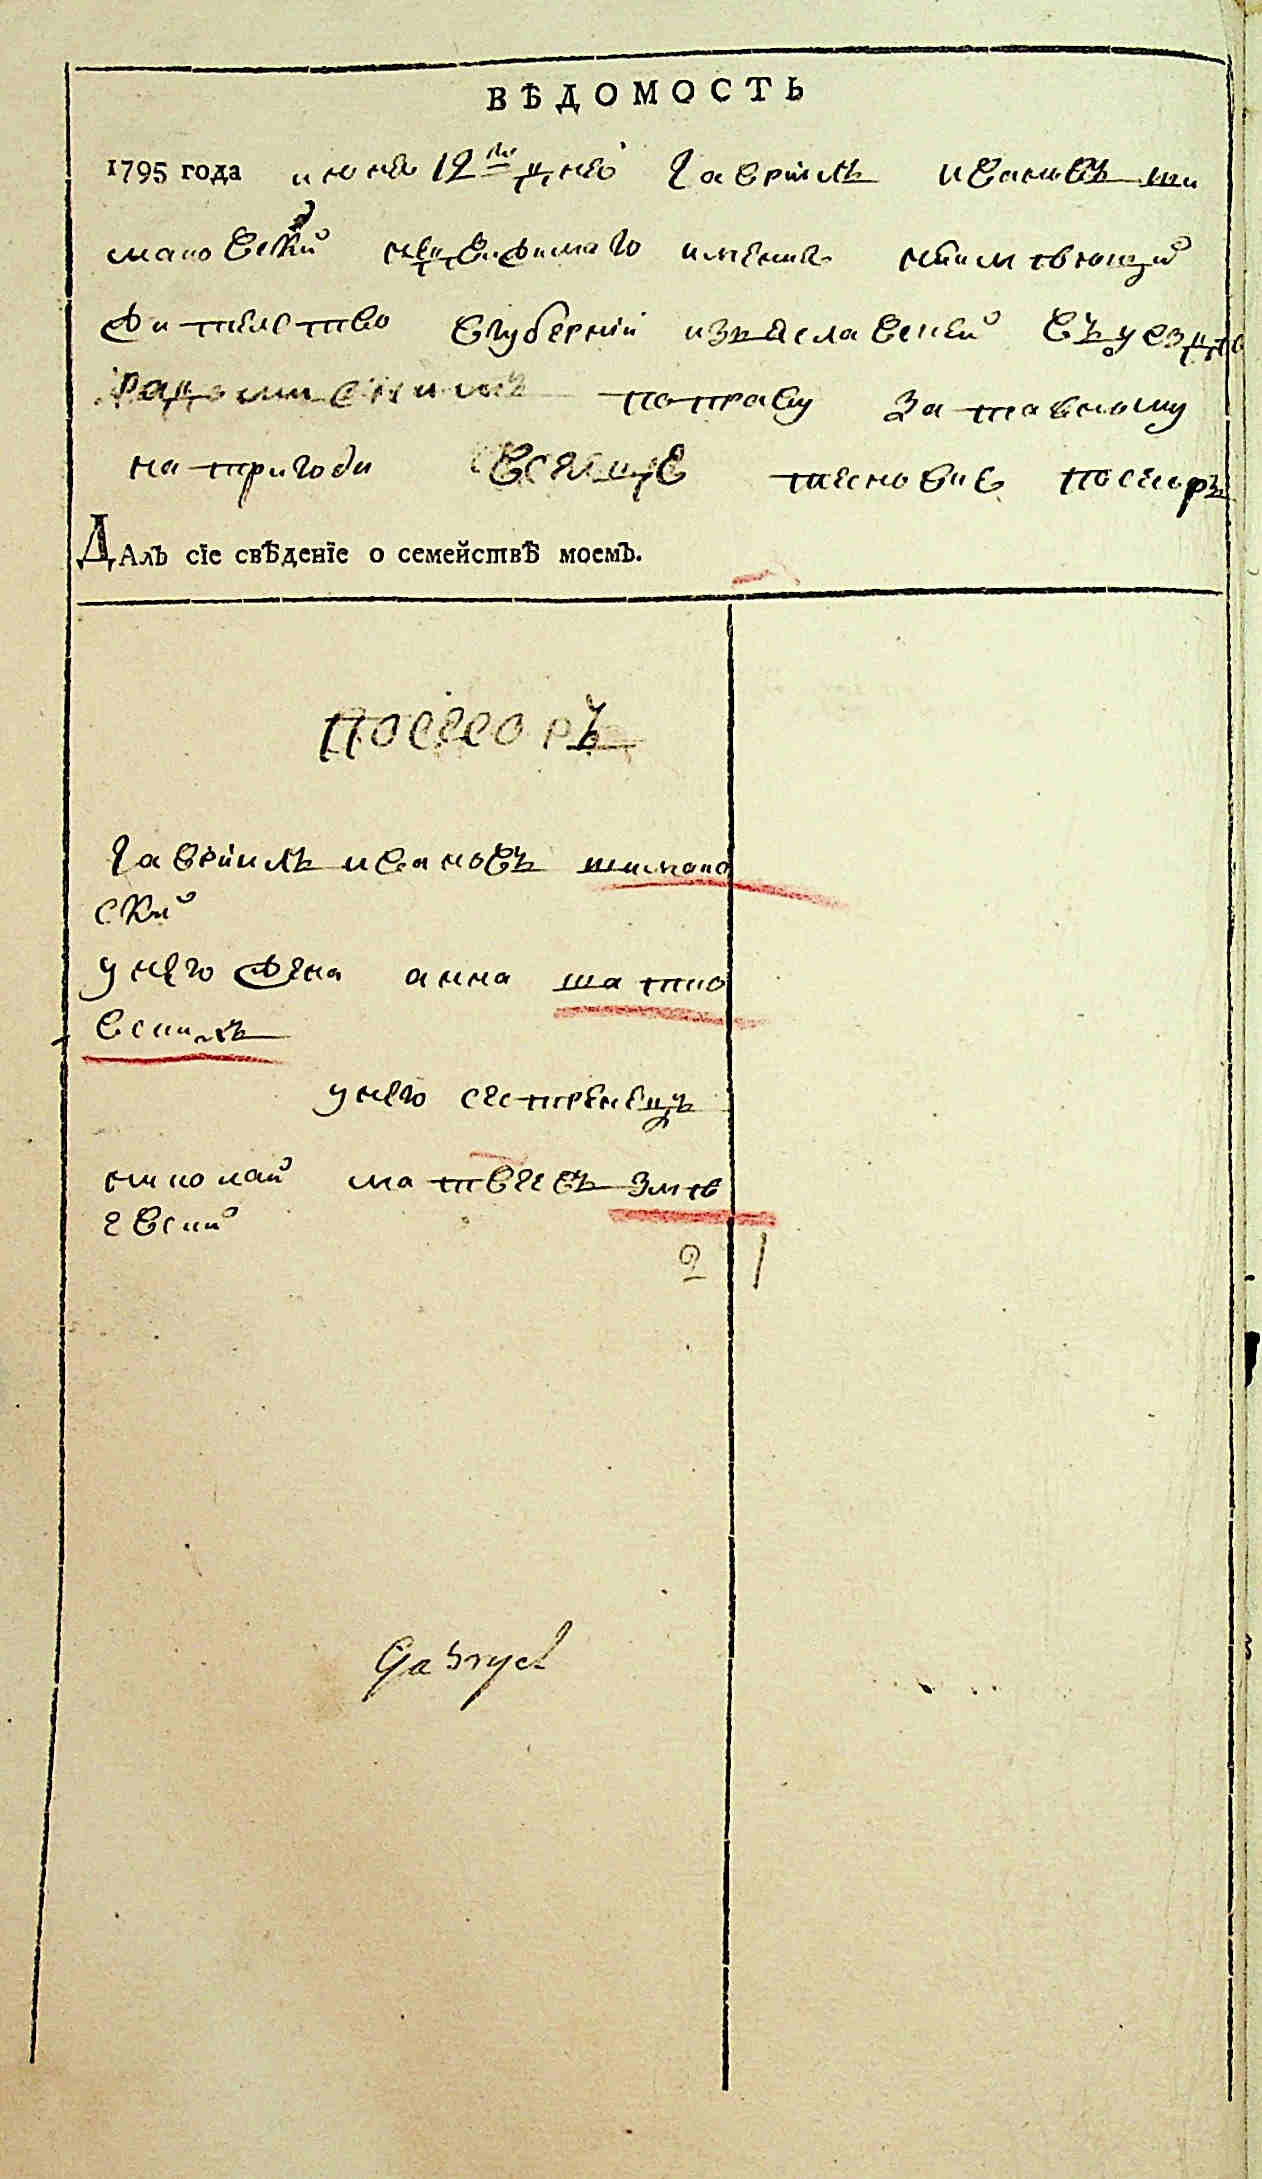 ВѢДОМОСТЬ
1795 года июня 12 го дня Гавриилъ Ивановъ Ши
мановский недвижимаго имения неимѣющий
жителство вгубернии изяславской въуезде
Радомисскимъ поправу заставному
натригоди вселце посесоръ
ДАлъ сїе свѣденїе о семействѣ моемъ.
посесоръ
Гавриилъ Ивановъ шимано
ский
унего жена анна шатко
вскихъ
унего сестренецъ
николай матвеевъ змѣ
евский
2 1